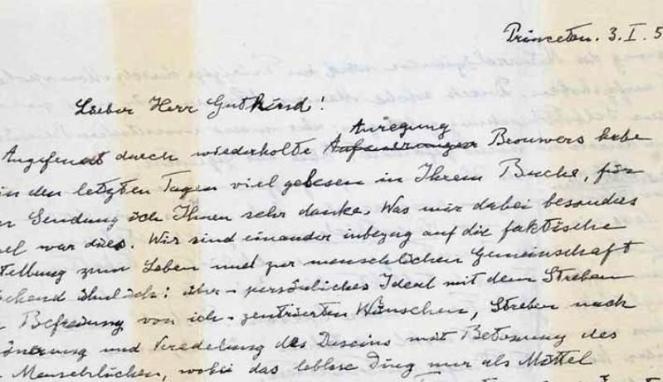 Princeton. 3. I. 5
Lieber Herr Gutkind!
Anregung
Angefeuert durch wiederholte Brouwers habe
in den letzten Tagen viel gelesen in Ihrem Buche, für
Sendung ich Ihnen sehr danke. Was mir dabei besonders
el war dies. Wir sind einander inbezug auf die faktische
tellung zum Leben und zur menschlichen Gemeinschaft
chend ähnlich: über-persönliches Ideal mit dem Streben
Befreiung von ich-zentrierten Wünschen, Streben nach
önerung und Veredelung des Daseins mit Betonung des
Menschlichen, wobei das leblose Ding nur als Mittel